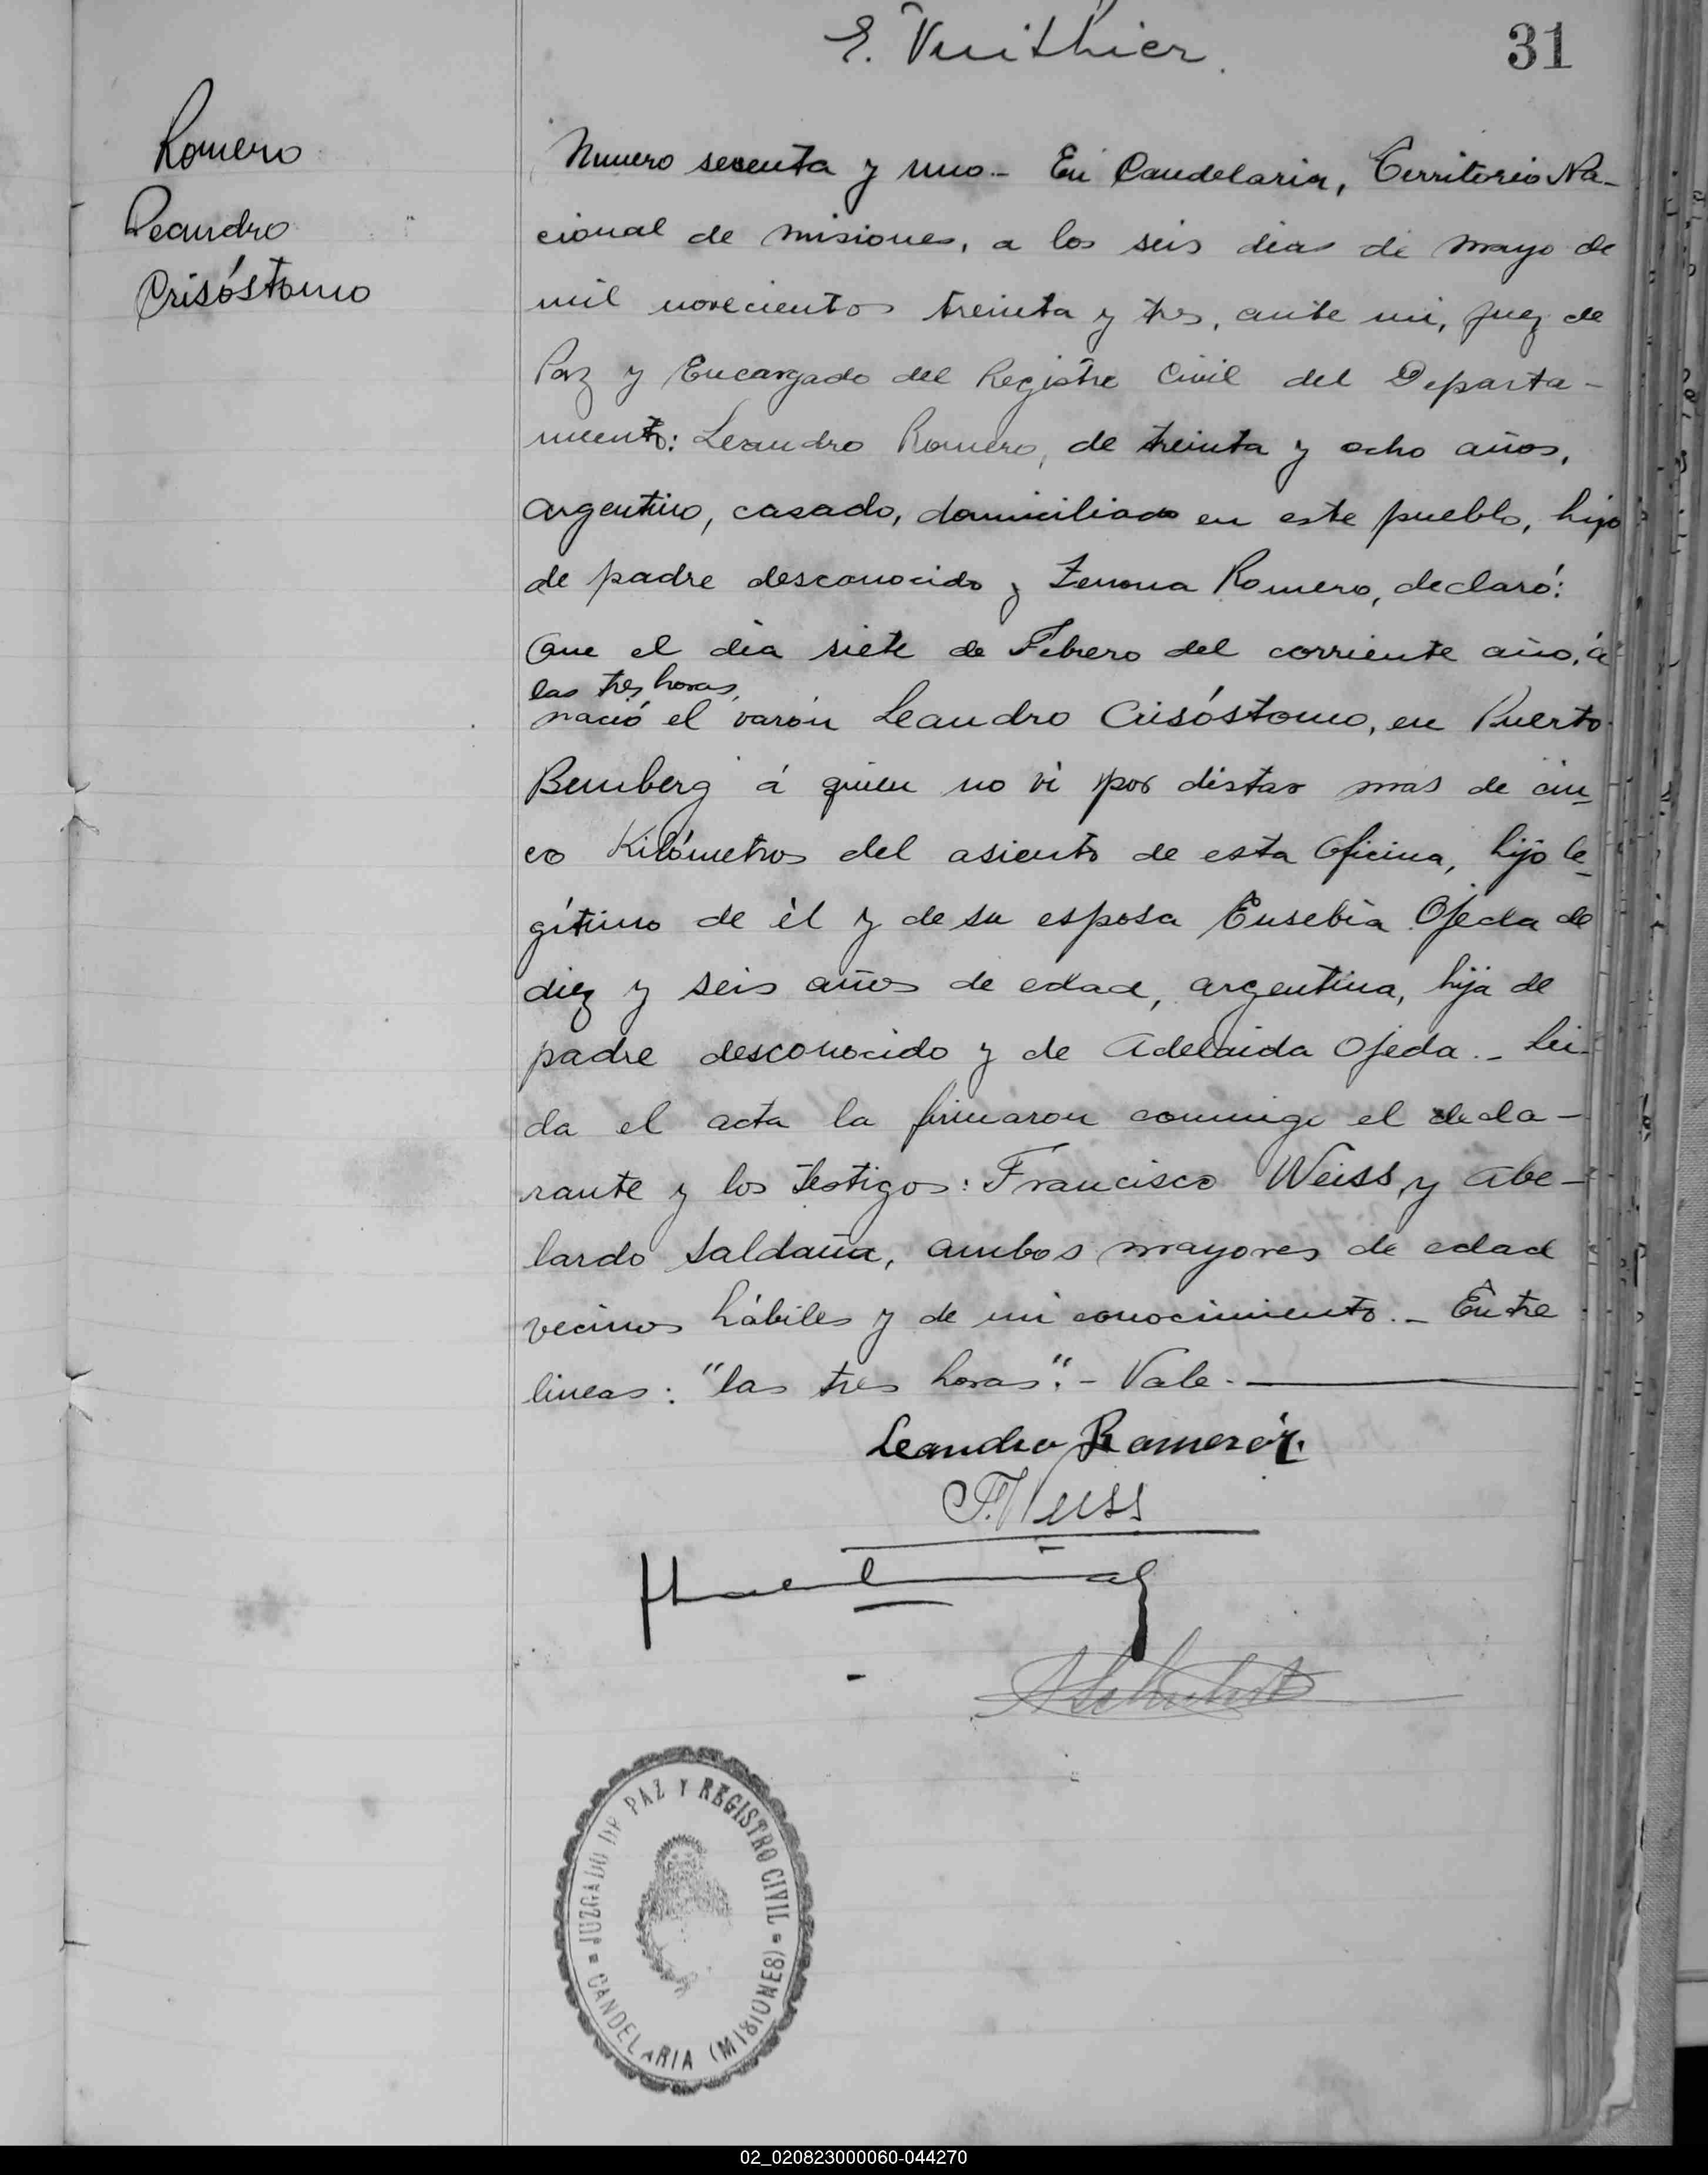 E. Vuithier.
31
Romero
Leandro
Crisóstomo
Numero sesenta y uno.- En Candelaria, Territorio Na-
cional de misiones, a los seis dias de mayo de
mil novecientos treinta y tres, ante mi, Juez de
Paz y Encargado del Registro Civil del Departa-
mento: Leandro Romero, de treinta y ocho años,
argentino, casado, domiciliado en este pueblo, hijo
de padre desconocido y Zenona Romero, declaró:
Que el dia siete de Febrero del corriente año, á
las tres horas,
nació el varón Leandro Crisóstomo, en Puerto
Bemberg á quien no vi por distar mas de cin-
co Kilómetros del asiento de esta Oficina, hijo le-
gítimo de él y de su esposa Eusebia Ojeda de
diez y seis años de edad, argentina, hija de
padre desconocido y de Adelaida Ojeda.- Lei-
da el acta la firmaron conmigo el decla-
rante y los testigos: Francisco Weiss, y Abe-
lardo Saldaña, ambos mayores de edad
vecinos hábiles y de mi conocimiento.- Entre
lineas: "las tres horas".- Vale.-
Leandro Romero
F. Weiss
JUZGADO DE PAZ Y REGISTRO CIVIL
CANDELARIA (MISIONES)
02_020823000060-044270